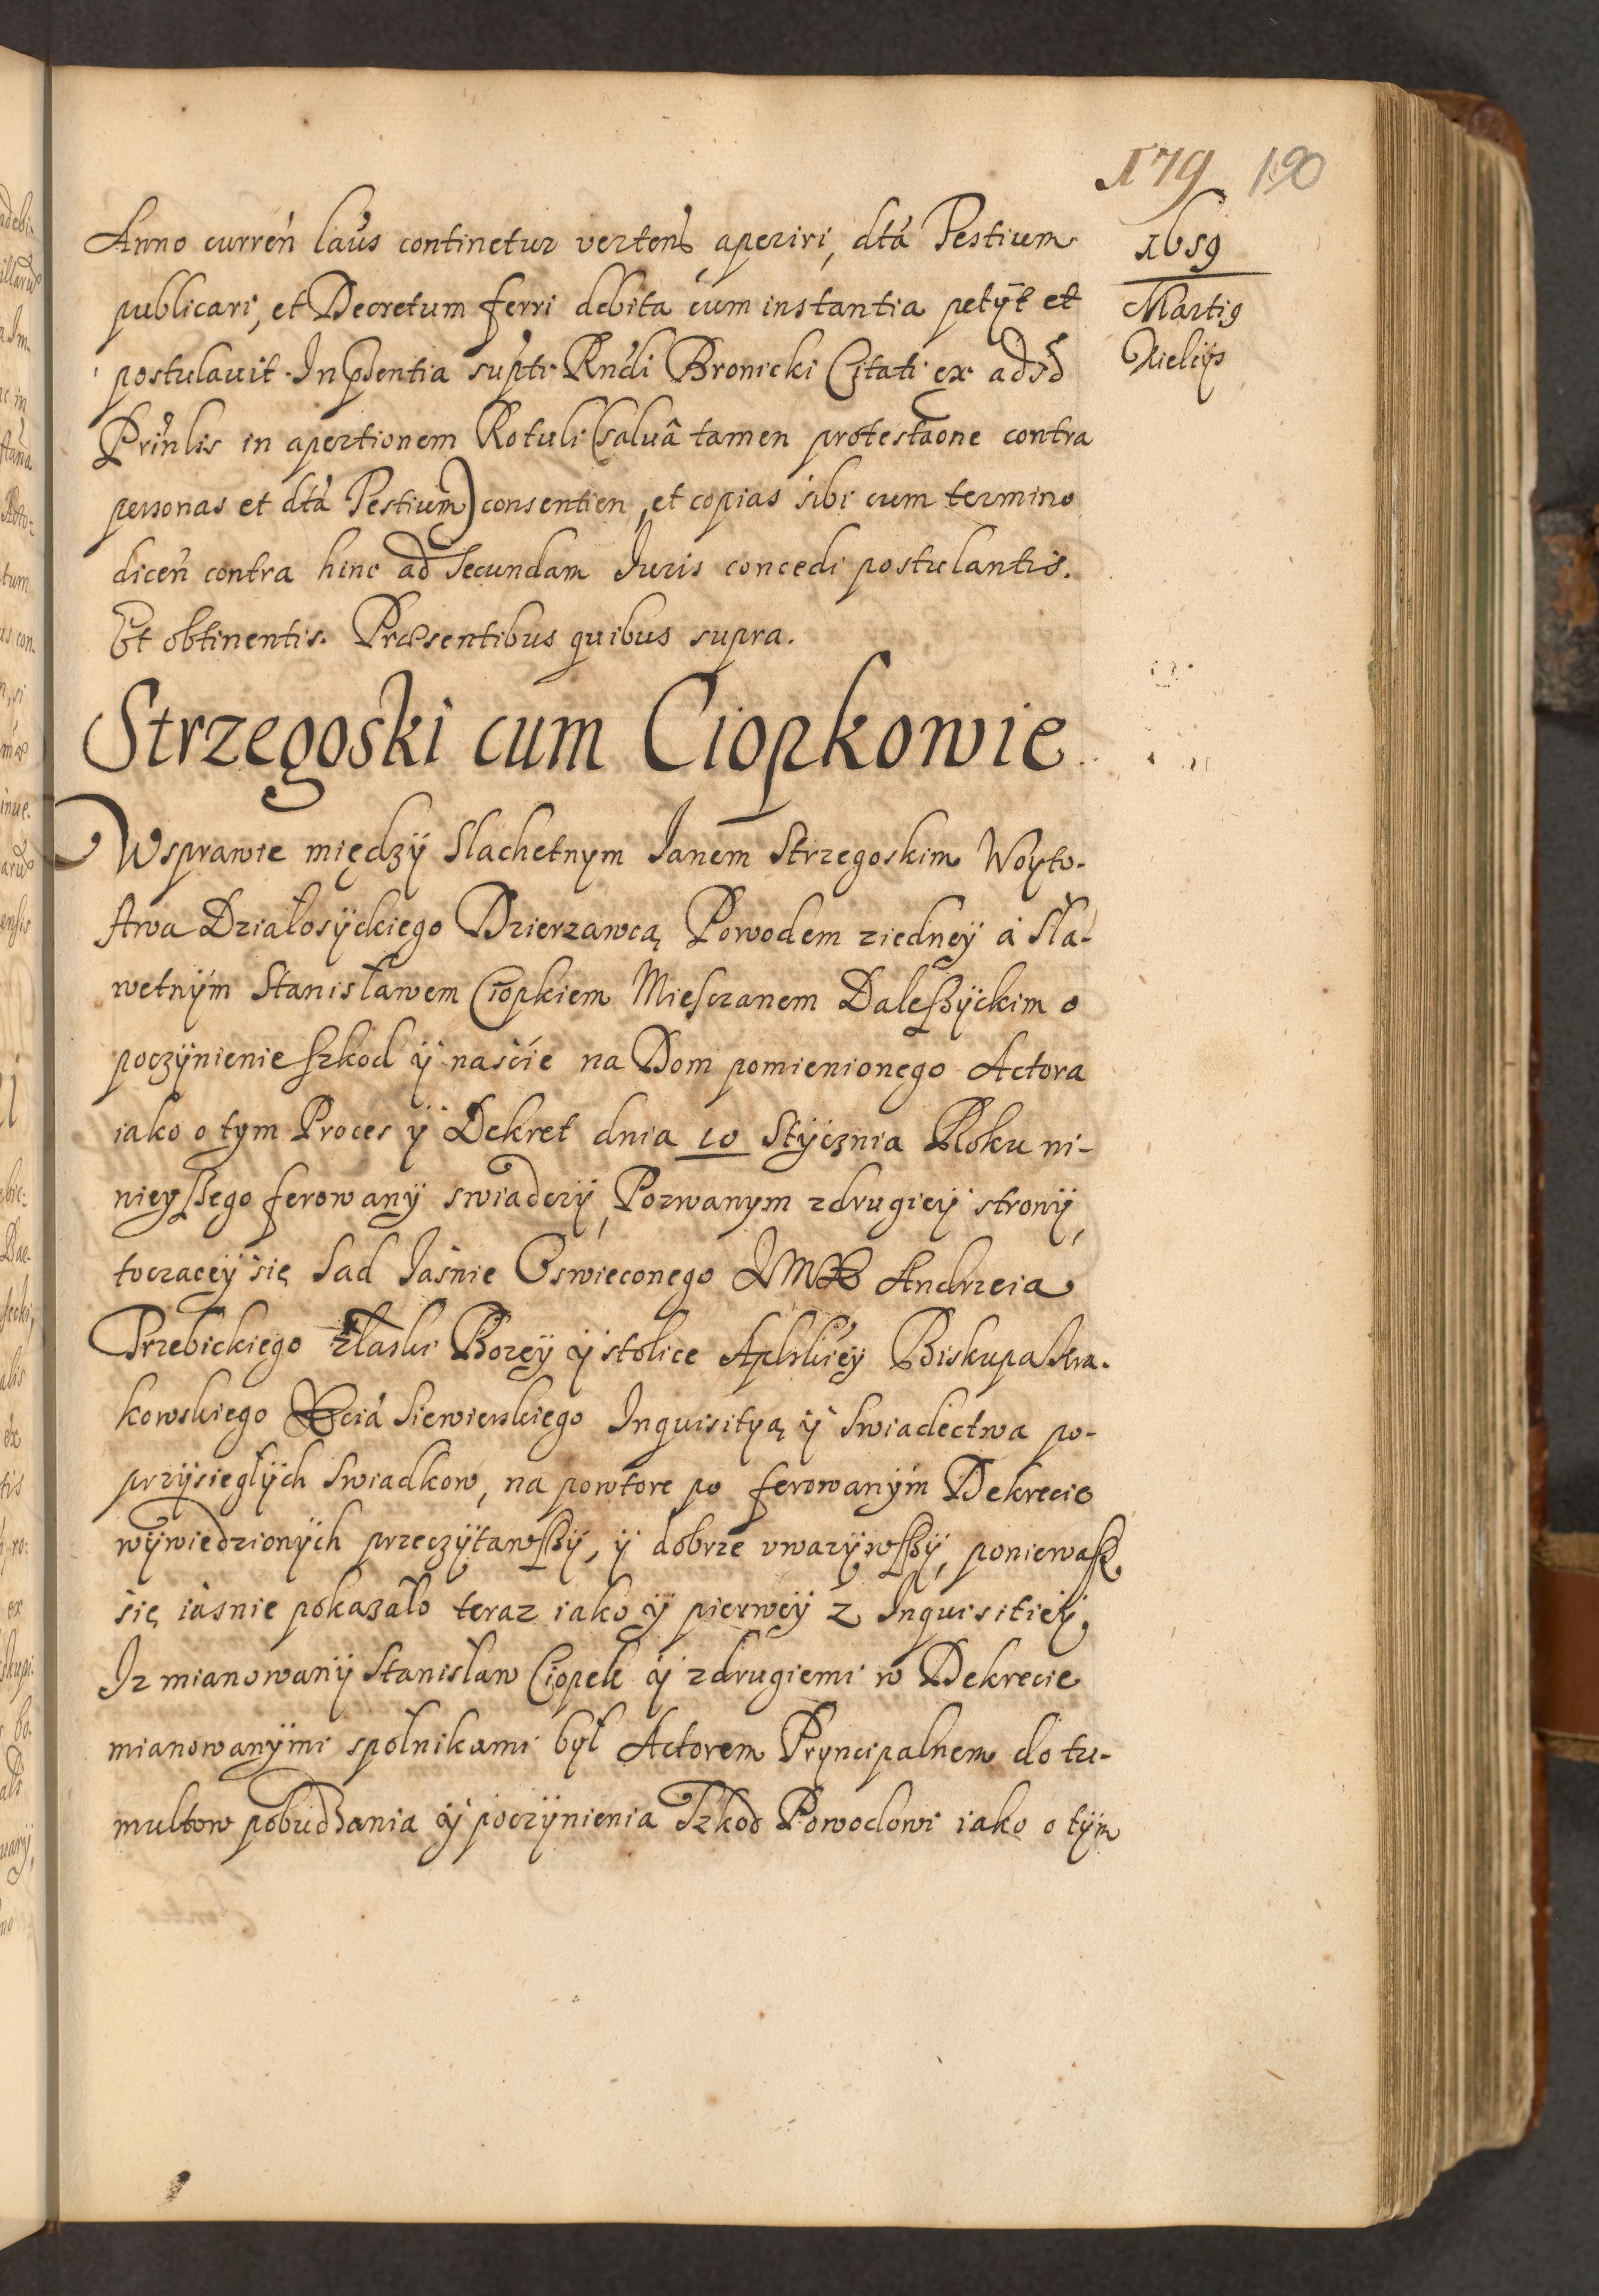 179 190
1659
Martig
Kielijs
Anno curren̄ laūs continetur vertens̄, aperiri, dtā Testium
publicari, et Decretum ferri debita cum instantia petÿt et
postulavit. In pñentia suptr Rndi Bronicki Citati ex adso
Prinlis in apertionem Rotuli (salvâ tamen protestaone contra
personas et dtā Testium) consentien, et copias sibi cum termino
dicen̄ contra hinc ad Secundam Iuris concedi postulantis.
Et obtinentis. Præsentibus quibus supra.
Strzegoski cum Ciopkowie
Wsprawie międzÿ Slachetnym Ianem Strzegoskim Woyto-
stwa Działosÿckiego Dzierzawcą Powodem ziedneÿ á Sła-
wetnÿm Stanisławem Ciopkiem Miesczanem Daleszÿckim o
poczÿnienie szkod ÿ naście na Dom pomienionego Actora
iako o tym Proces ÿ Dekret dnia 10 Stÿcznia Roku ni-
nieyszego ferowanÿ swiadczÿ, Pozwanym zdrugieÿ stronÿ,
toczaceÿ się Sad Iaśnie Oswieconego IMX Andrzeia
Trzebickiego złaski Bozeÿ ÿ stolice Aplskieÿ Biskupa Kra-
kowskiego Xcia Siewierskiego Inquisitÿą ÿ swiadectwa po-
przÿsiegłÿch swiadkow, na powtore po ferowanÿm Dekrecie
wÿwiedzionÿch przeczÿtawszÿ, ÿ dobrze uwazÿwszÿ, poniewasz
się iasnie pokazało teraz iako ÿ pierweÿ z Inquisitieÿ,
Iz mianowanÿ Stanisław Ciopek ÿ zdrugiemi w Dekrecie
mianowanÿmi spolnikami bÿł Actorem Pryncipalnem do tu-
multow pobudzania ÿ poczÿnienia Szkod Powodowi iako o tÿm